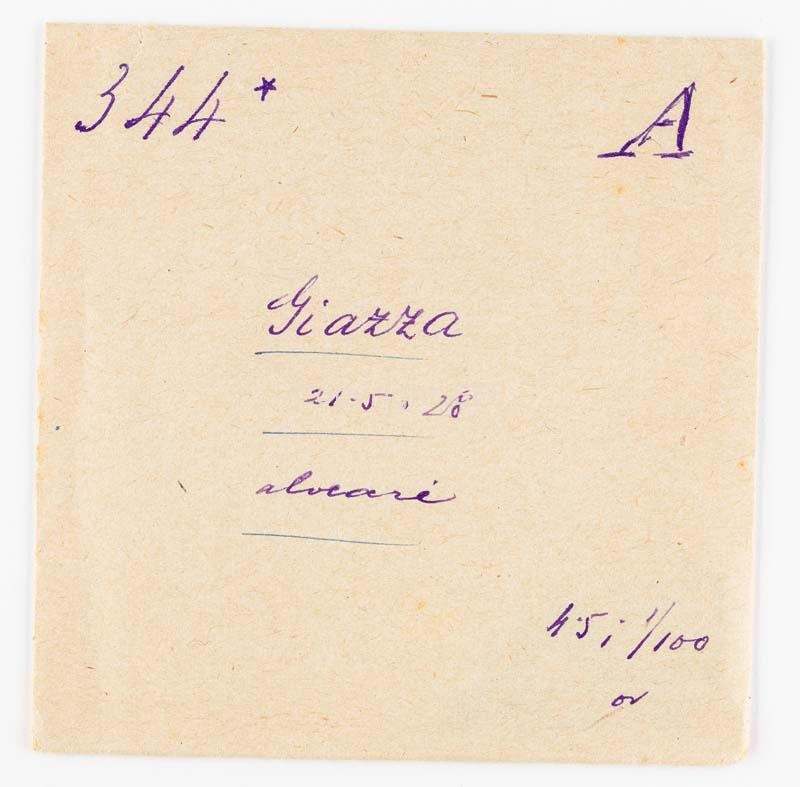 344* A
Giazza
21·5·28
alveari
4·5; 1/100
or